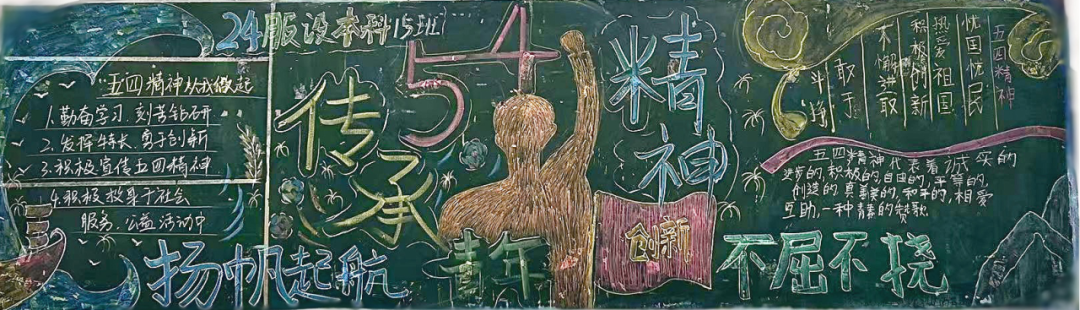 24服设本科15班
五四精神从我做起
1.勤奋学习 刻苦钻研
2.发挥特长、勇于创新
3.积极宣传五四精神
4.积极投身于社会
服务、公益活动中
扬帆起航
传承
54
精神
青年
创新
不屈不挠
五四精神
忧国忧民
热爱祖国
积极创新
不懈进取
敢于
斗争
五四精神代表着诚实的
进步的,积极的,自由的,平等的,
创造的,真善美的,和平的,相爱
互助,一种青春的赞歌